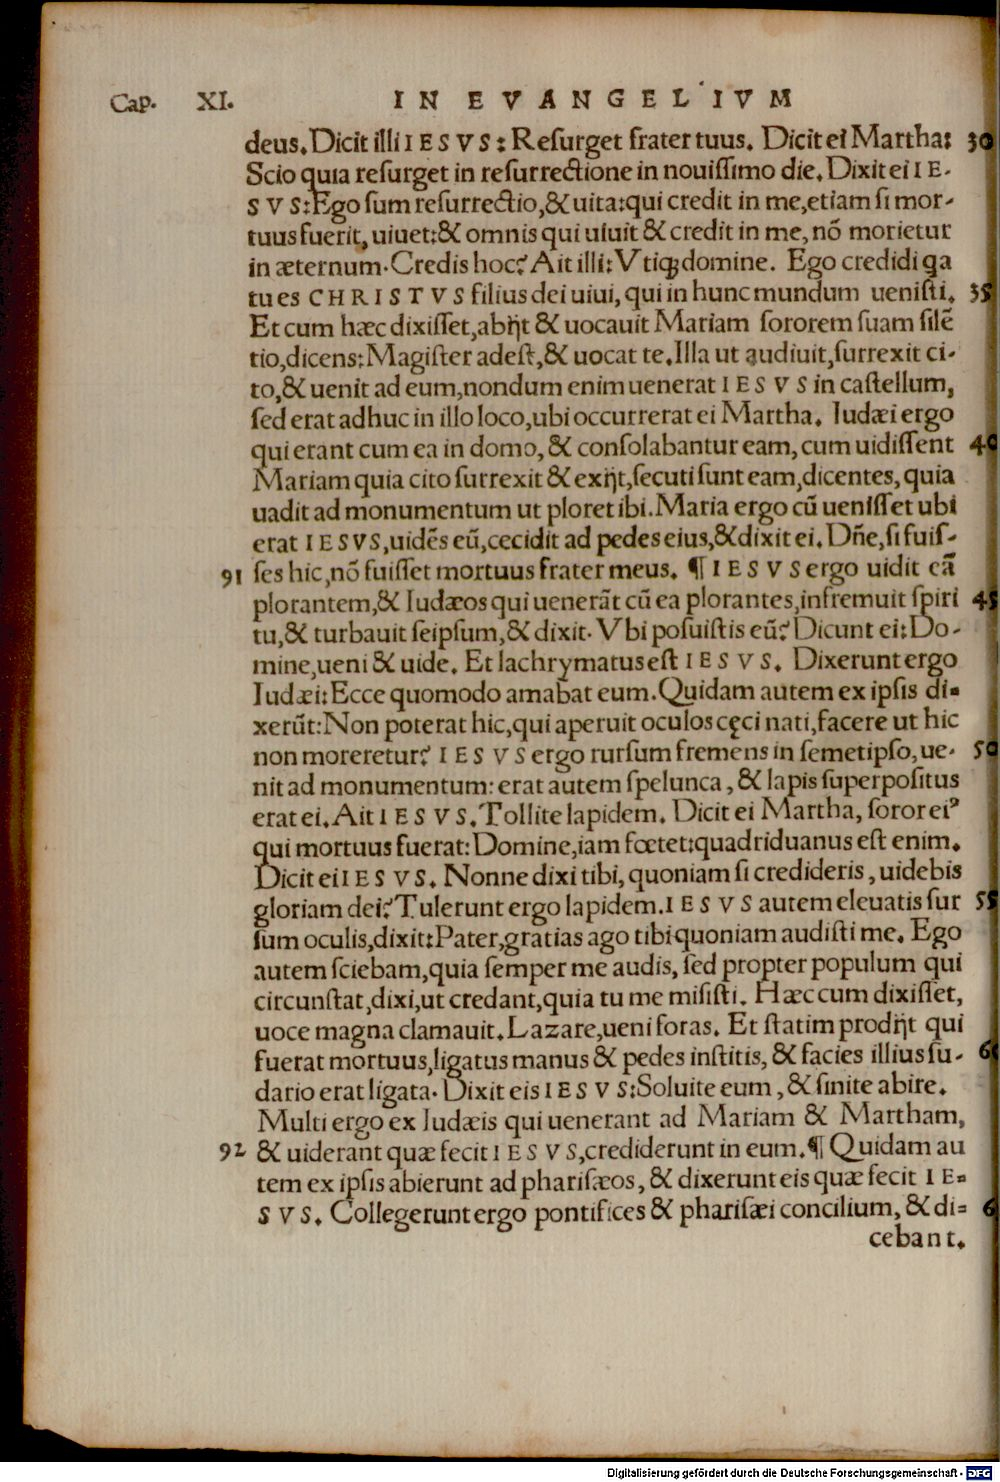 Cap. XI. IN EVANGELIVM
deus. Dicit illi IESVS: Resurget frater tuus. Dicit ei Martha: 30
Scio quia resurget in resurrectione in nouissimo die. Dixit ei IE-
SVS: Ego sum resurrectio, & uita: qui credit in me, etiam si mor-
tuus fuerit, uiuet: & omnis qui uiuit & credit in me, nõ morietur
in æternum. Credis hoc? Ait illi: Vtiqꝫ domine. Ego credidi qa
tu es CHRISTVS filius dei uiui, qui in hunc mundum uenisti. 35
Et cum hæc dixisset, abijt & uocauit Mariam sororem suam silẽ
tio, dicens: Magister adest, & uocat te. Illa ut audiuit, surrexit ci-
to, & uenit ad eum, nondum enim uenerat IESVS in castellum,
sed erat adhuc in illo loco, ubi occurrerat ei Martha. Iudæi ergo
qui erant cum ea in domo, & consolabantur eam, cum uidissent 40
Mariam quia cito surrexit & exijt, secuti sunt eam, dicentes, quia
uadit ad monumentum ut ploret ibi. Maria ergo cũ uenisset ubi
erat IESVS, uidẽs eũ, cecidit ad pedes eius, & dixit ei. Dñe, si fuis-
91 ses hic, nõ fuisset mortuus frater meus. ¶ IESVS ergo uidit eã
plorantem, & Iudæos qui uenerãt cũ ea plorantes, infremuit spiri 45
tu, & turbauit seipsum, & dixit. Vbi posuistis eũ? Dicunt ei: Do-
mine, ueni & uide. Et lachrymatus est IESVS. Dixerunt ergo
Iudæi: Ecce quomodo amabat eum. Quidam autem ex ipsis di-
xerũt: Non poterat hic, qui aperuit oculos cęci nati, facere ut hic
non moreretur? IESVS ergo rursum fremens in semetipso, ue- 50
nit ad monumentum: erat autem spelunca, & lapis superpositus
erat ei. Ait IESVS. Tollite lapidem. Dicit ei Martha, soror eiꝰ
qui mortuus fuerat: Domine, iam fœtet: quadriduanus est enim.
Dicit ei IESVS. Nonne dixi tibi, quoniam si credideris, uidebis
gloriam dei? Tulerunt ergo lapidem. IESVS autem eleuatis sur 55
sum oculis, dixit: Pater, gratias ago tibi quoniam audisti me. Ego
autem sciebam, quia semper me audis, sed propter populum qui
circunstat, dixi, ut credant, quia tu me misisti. Hæc cum dixisset,
uoce magna clamauit. Lazare, ueni foras. Et statim prodijt qui
fuerat mortuus, ligatus manus & pedes institis, & facies illius su- 60
dario erat ligata. Dixit eis IESVS: Soluite eum, & sinite abire.
Multi ergo ex Iudæis qui uenerant ad Mariam & Martham,
92 & uiderant quæ fecit IESVS, crediderunt in eum. ¶ Quidam au
tem ex ipsis abierunt ad pharisæos, & dixerunt eis quæ fecit IE-
SVS. Collegerunt ergo pontifices & pharisæi concilium, & di- 6
cebant.
Digitalisierung gefördert durch die Deutsche Forschungsgemeinschaft - DFG